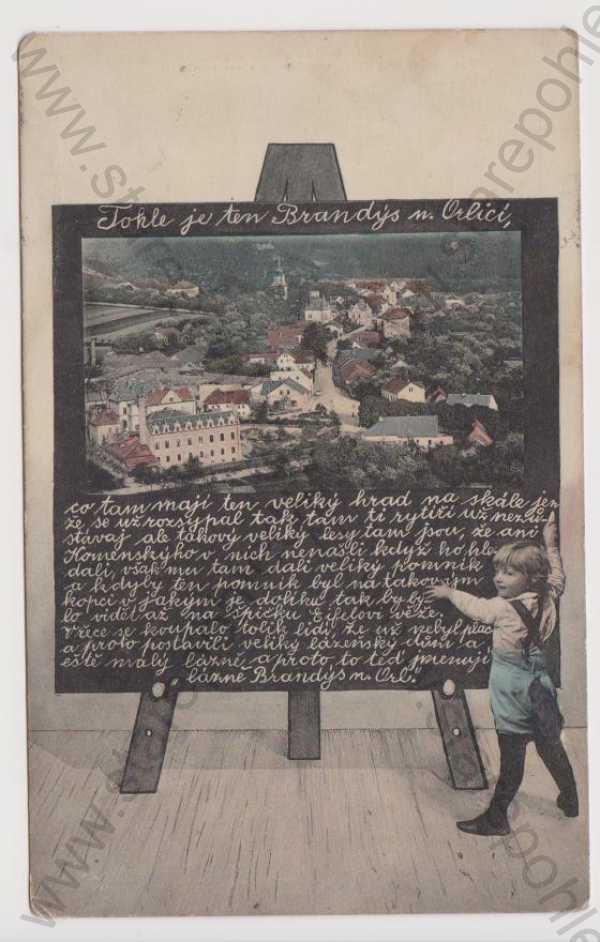 Tohle je ten Brandýs n. Orlicí,
co tam mají ten veliký hrad na skále jen
že se už rozsýpal tak tam ti rytíři už nezů-
stávaj ale takový veliký lesy tam jsou, že ani
Komenskýho v nich nenašli když ho hle-
dali, však mu tam dali veliký pomník
a kdyby ten pomník byl na takovým
kopci v jakým je dolíku tak by by-
lo vidět až na špičku Eifelovi věže
V řice se koupalo tolik lidí, že už nebyl plac
a proto postavili veliký lázeňský dům a
eště malý lázně, a proto to teď jmenují
"lázně Brandýs n. Orl."